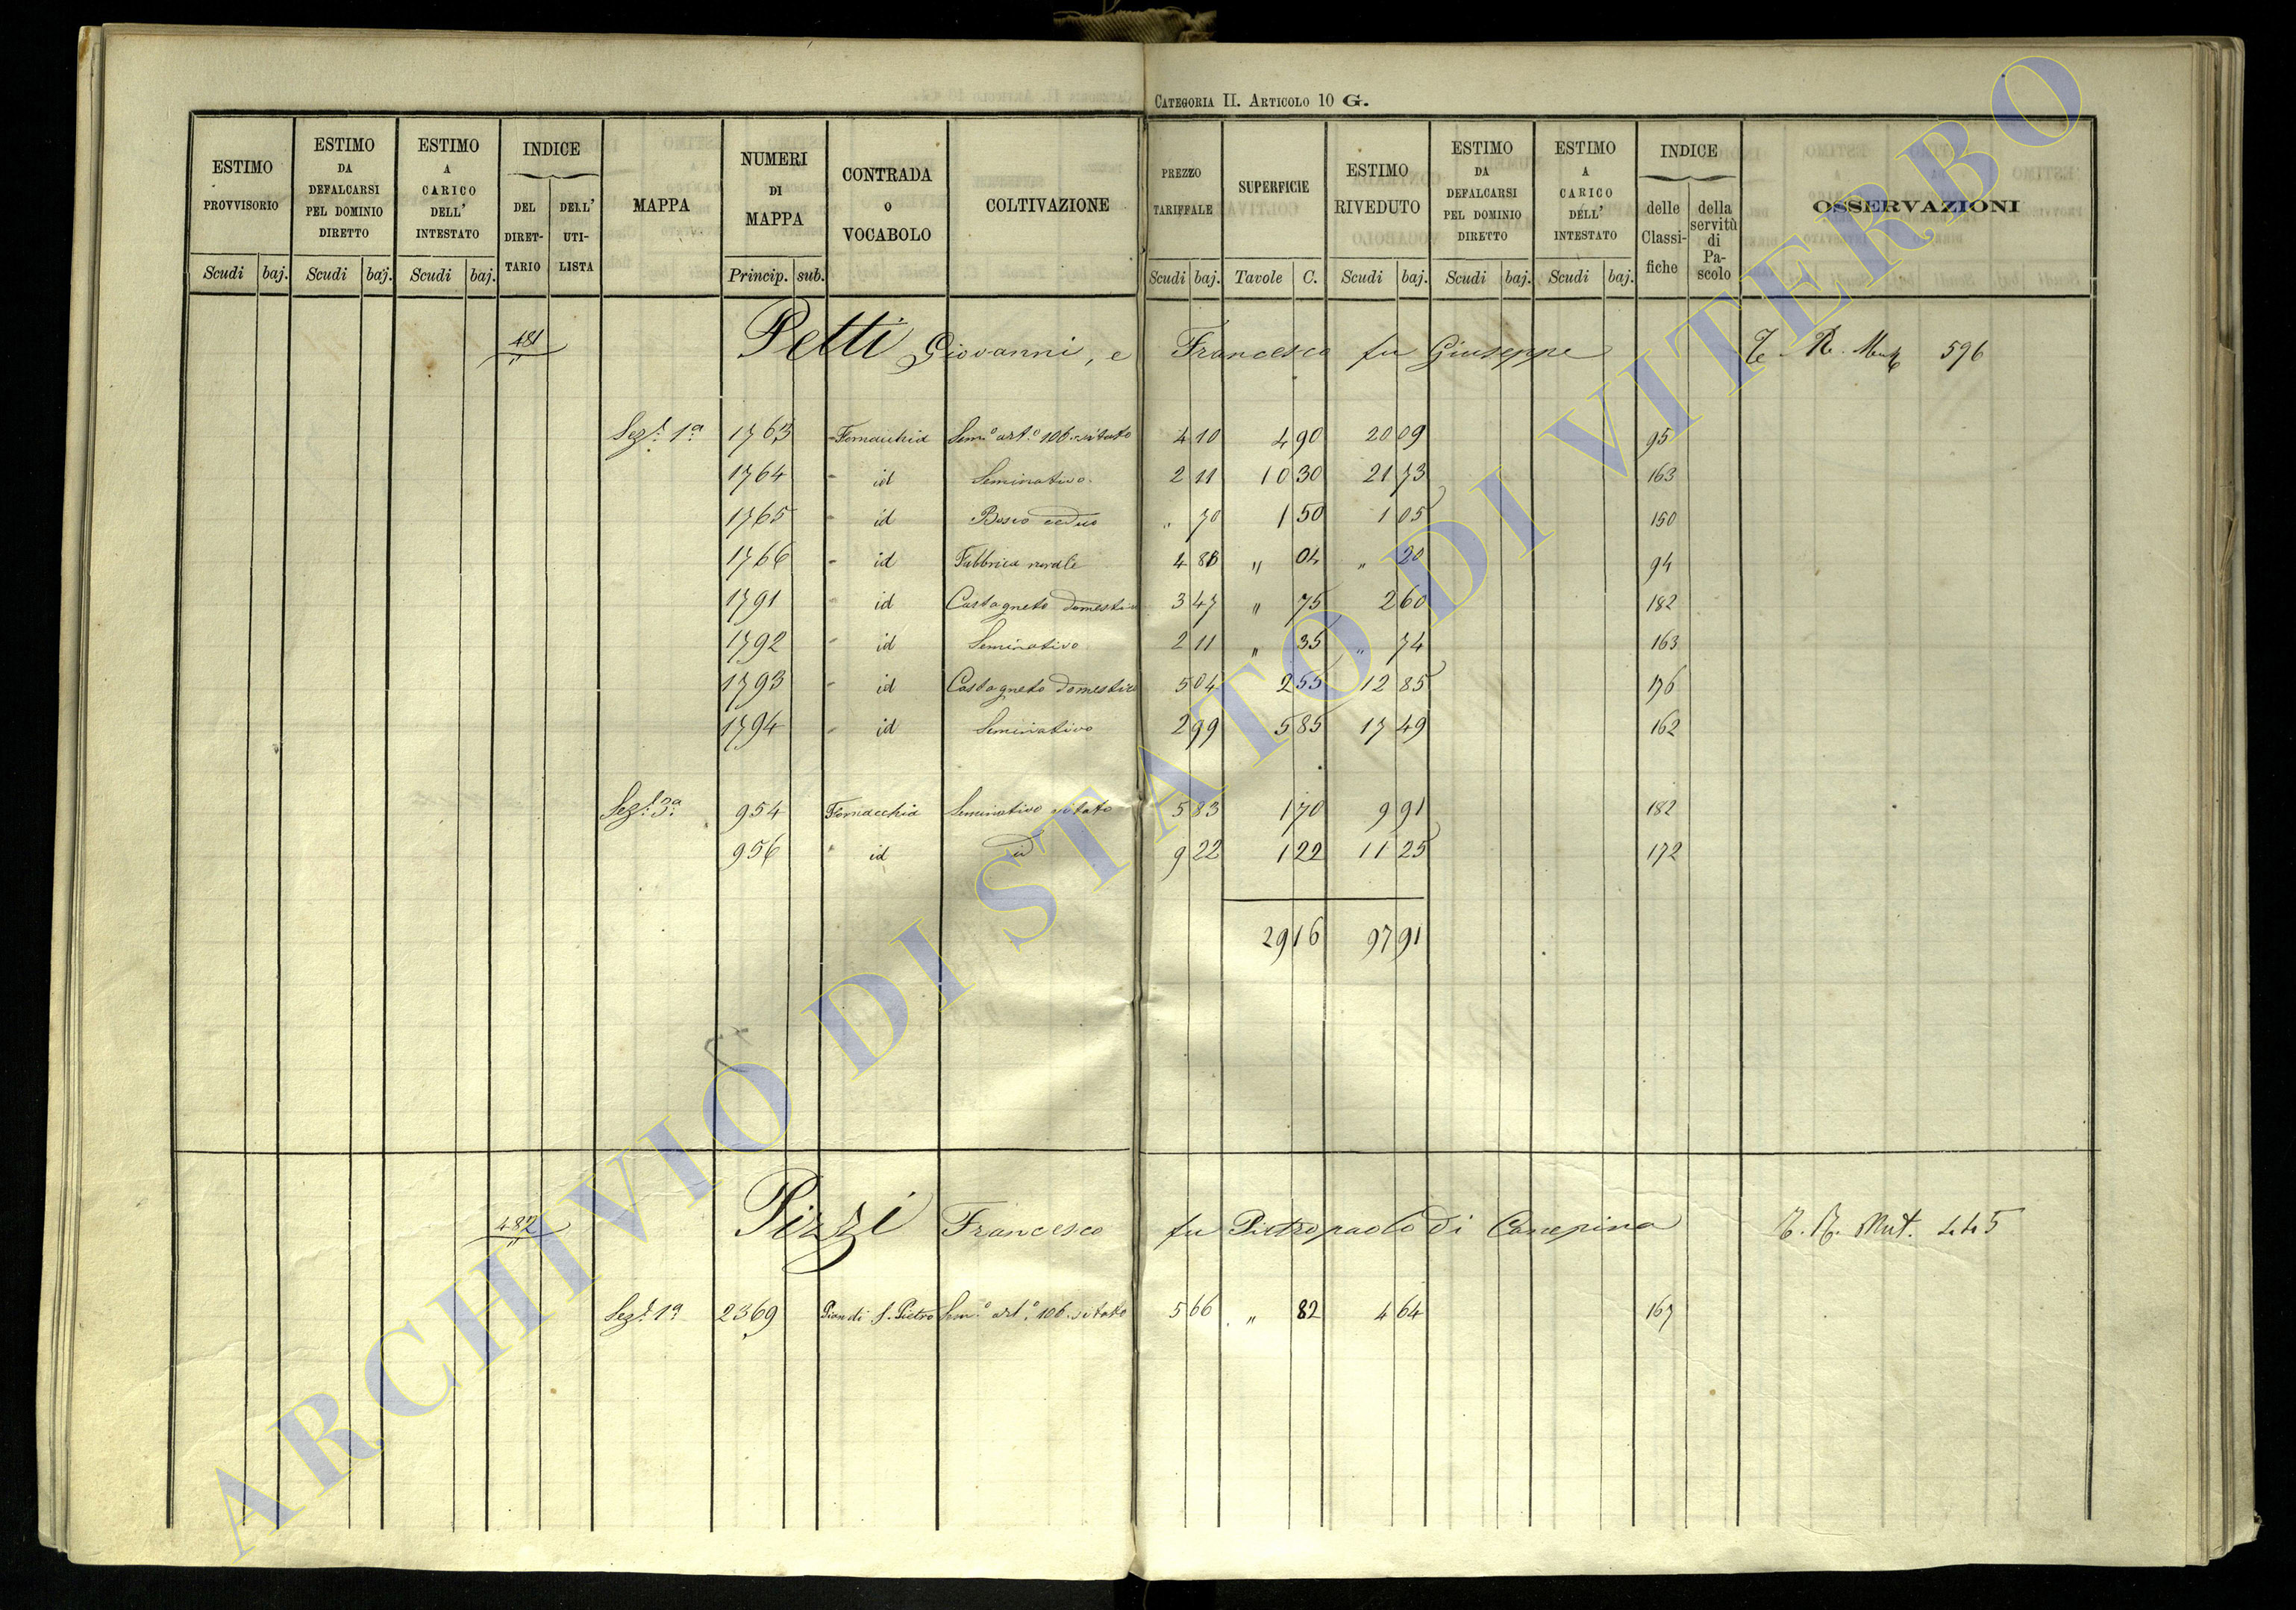 CATEGORIA II. ARTICOLO 10 G.
ESTIMO PROVVISORIO | ESTIMO DA DEFALCARSI PEL DOMINIO DIRETTO | ESTIMO A CARICO DELL' INTESTATO | INDICE DEL DIRETTARIO | DELL' UTILISTA | MAPPA | NUMERI DI MAPPA | CONTRADA O VOCABOLO | COLTIVAZIONE | PREZZO TARIFFALE | SUPERFICIE | ESTIMO RIVEDUTO | ESTIMO DA DEFALCARSI PEL DOMINIO DIRETTO | ESTIMO A CARICO DELL' INTESTATO | INDICE delle Classifiche | della servitù di Pascolo | OSSERVAZIONI
Scudi | baj. | Scudi | baj. | Scudi | baj. | Princip. | sub. | Scudi | baj. | Tavole | C. | Scudi | baj. | Scudi | baj. | Scudi | baj.
481 Petti Giovanni, e Francesco fu Giuseppe 596
Sezᵉ 1ª 1763 Fornacchia Semº artº 106. vitato 4 10 4 90 20 09 95
1764 - id Seminativo 2 11 10 30 21 73 163
1765 - id Bosco ceduo " 70 1 50 1 05 150
1766 - id Fabbrica rurale 4 88 " 04 " 20 94
1791 - id Castagneto domestico 3 47 " 75 2 60 182
1792 - id Seminativo 2 11 " 35 " 74 163
1793 - id Castagneto domestico 5 04 2 55 12 85 176
1794 - id Seminativo 2 99 5 85 17 49 162
Sezᵉ 3ª 954 Fornacchia Seminativo vitato 5 83 1 70 9 91 182
956 " id id 9 22 1 22 11 25 172
29 16 97 91
482 Pizzi Francesco fu Pietropaolo di Canepina Mut. 445
Sezᵉ 1ª 2369 Pian di S. Pietro Semº artº 106. vitato 5 66 " 82 4 64 167
ARCHIVIO DI STATO DI VITERBO